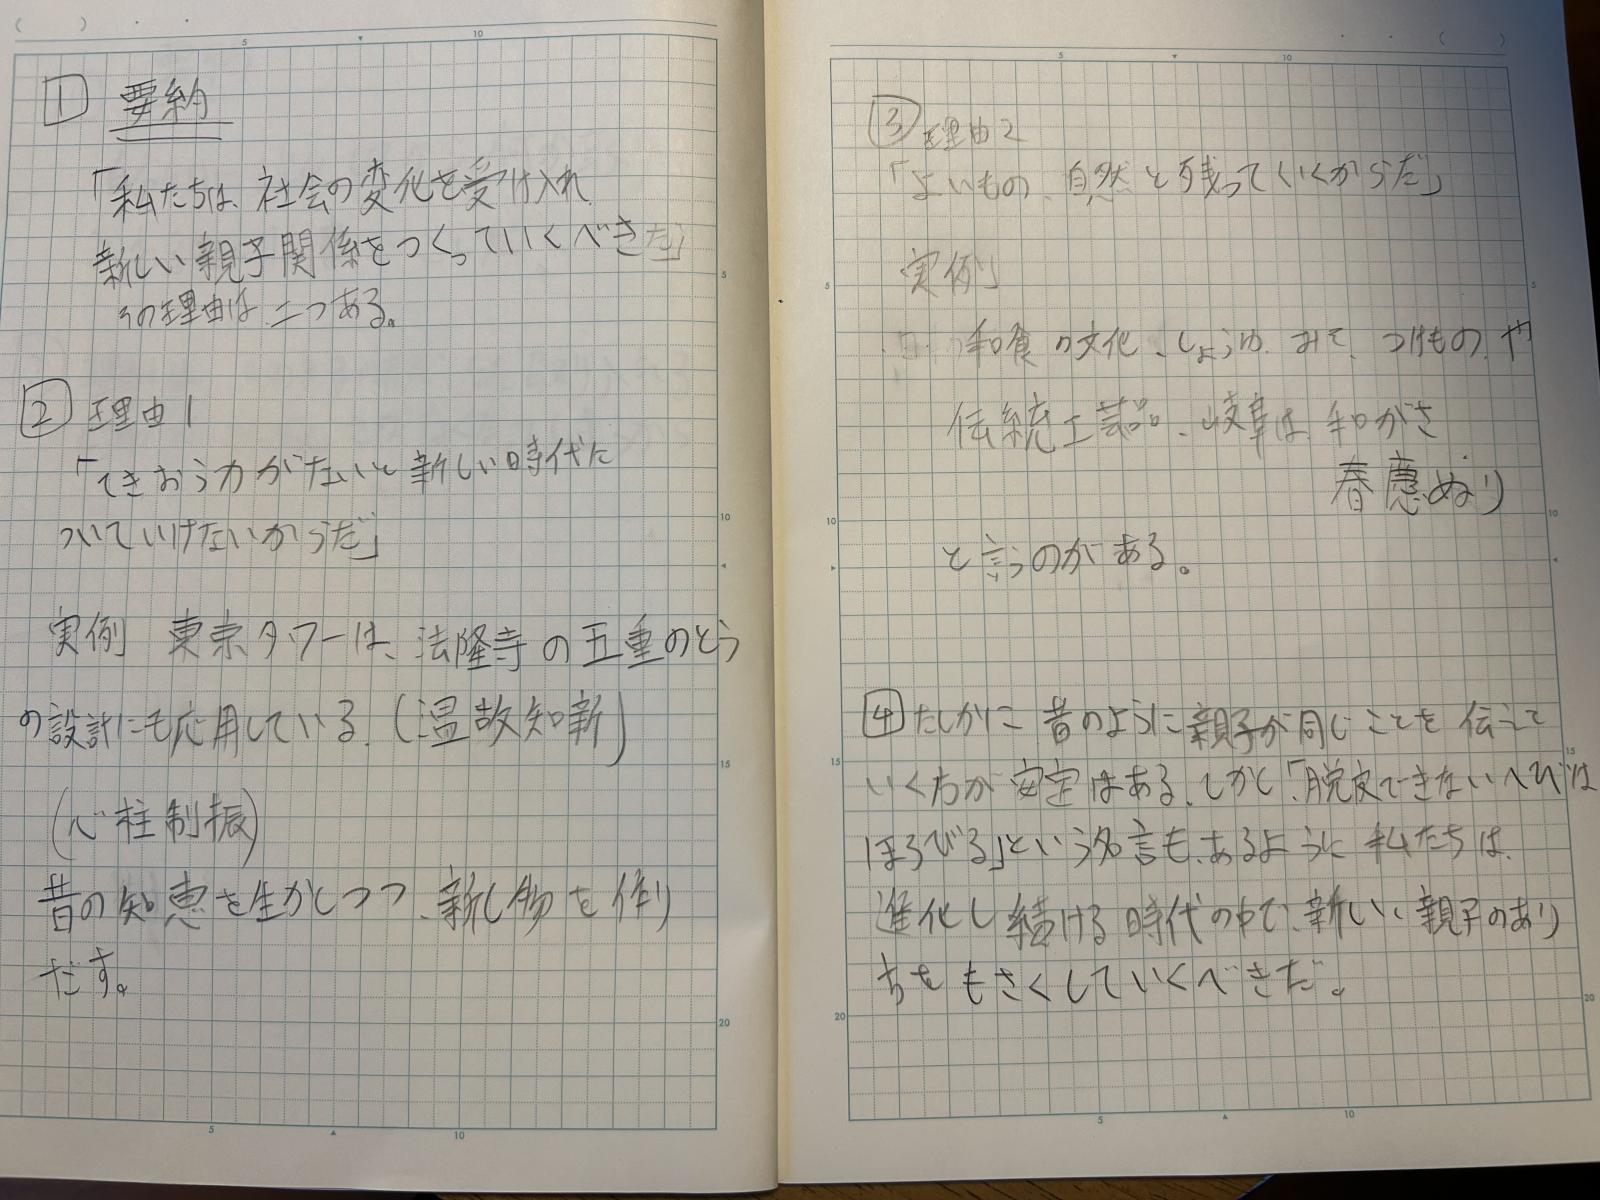 1 要約
「私たちは、社会の変化を受け入れ
新しい親子関係をつくっていくべきだ」
その理由は二つある。
2 理由1
「てきおう力がないと新しい時代に
ついていけないからだ」
実例 東京タワーは、法隆寺の五重のとう
の設計にも応用している。(温故知新)
(心柱制振)
昔の知恵を生かしつつ、新し物を作り
だす。
3 理由2
「よいもの、自然と残っていくからだ」
実例
和食の文化、しょうゆ、みそ、つけもの、や
伝統工芸品、岐阜は和がさ
春慶ぬり
と言うのがある。
4 たしかに昔のように親子が同じことを伝えて
いく方が安定はある。しかし、「脱皮できないへびは
ほろびる」という名言も、あるように私たちは、
進化し続ける時代の中で、新しい親子のあり
方をもさくしていくべきだ。